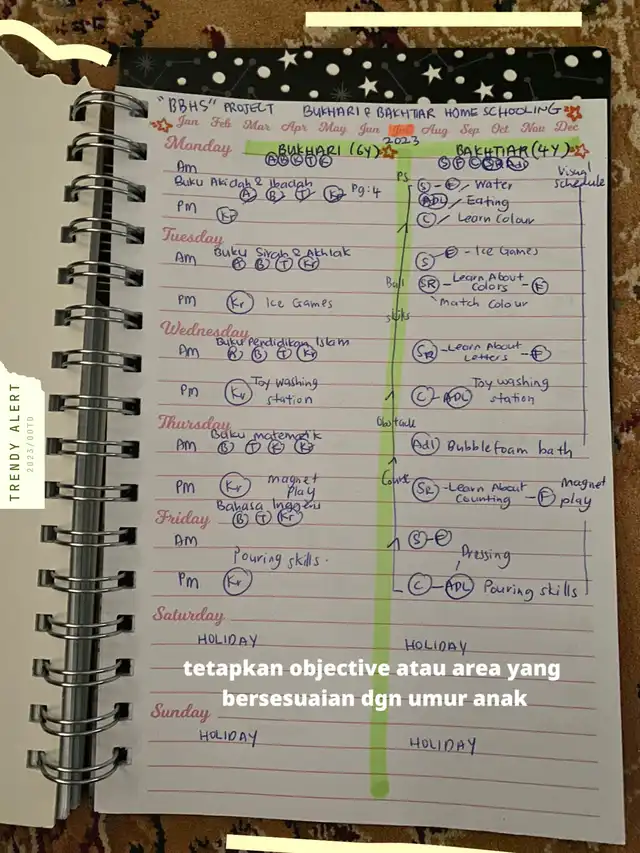 "BBHS" PROJECT BUKHARI & BAKHTIAR HOME SCHOOLING
Jan Feb Mar Apr May Jun Jul Aug Sep Oct Nov Dec
2023
Monday BUKHARI (6Y) BAKHTIAR (4Y)
Visual schedule
Am
Buku Akidah & Ibadah
A B T Kr Pg:4
PM Kr
PS
S - F / Water
ADL / Eating
C / Learn Colour
Tuesday
Am Buku Sirah & Akhlak
B T Kr
PM Kr Ice Games
S F - Ice Games
Ball skills
SR - Learn About colors - F
Match colour
Wednesday
Am Buku Pendidikan Islam
B T Kr
SR - Learn About Letters - F
PM Kr Toy washing station
C - ADL Toy washing station
Thursday
Am Buku matematik
B T K Kr
Obstacle
Adl Bubble foam bath
PM Kr magnet play
Course
SR - Learn About Counting - F Magnet play
Friday
Bahasa Inggeris
B T Kr
AM
S - F
Pouring skills.
Dressing
PM Kr
C - ADL Pouring skills
Saturday
HOLIDAY HOLIDAY
tetapkan objective atau area yang
bersesuaian dgn umur anak
Sunday
HOLIDAY HOLIDAY
TRENDY ALERT